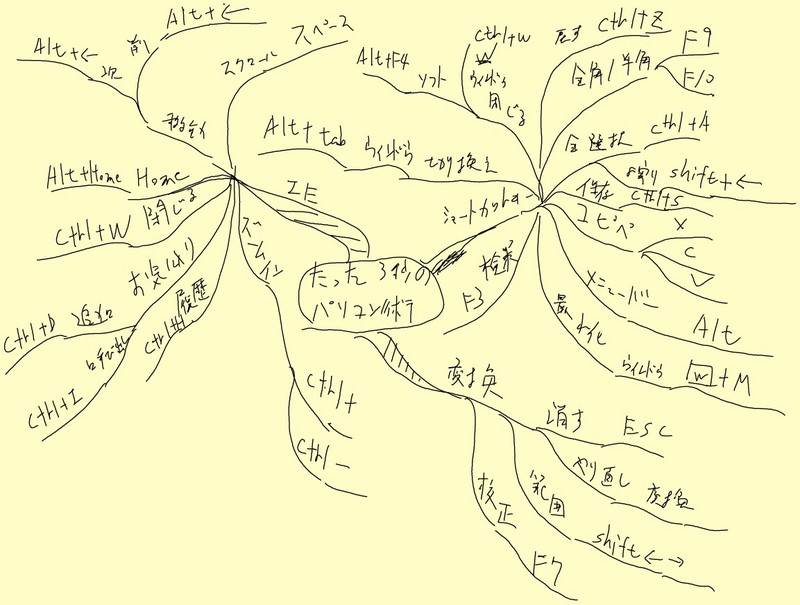 たった3秒の
パソコン術
IE
移動
前
Alt+←
次
Alt+←
スクロール
スペース
Home
Alt+Home
閉じる
Ctrl+W
お気に入り
追加
Ctrl+D
呼び出し
Ctrl+I
履歴
Ctrl+H
ズームイン
Ctrl+
Ctrl-
ショートカットキー
戻す
Ctrl+Z
全角/半角
F9
F10
全選択
Ctrl+A
shift+←
保存
Ctrl+S
コピペ
X
C
V
メニューバー
Alt
最小化
ウィンドウ
W+M
検索
F3
切り換え
ウィンドウ
Alt+tab
閉じる
ウィンドウ
Ctrl+W
ソフト
Alt+F4
変換
消す
ESC
やり直し
変換
範囲
shift←→
校正
F7